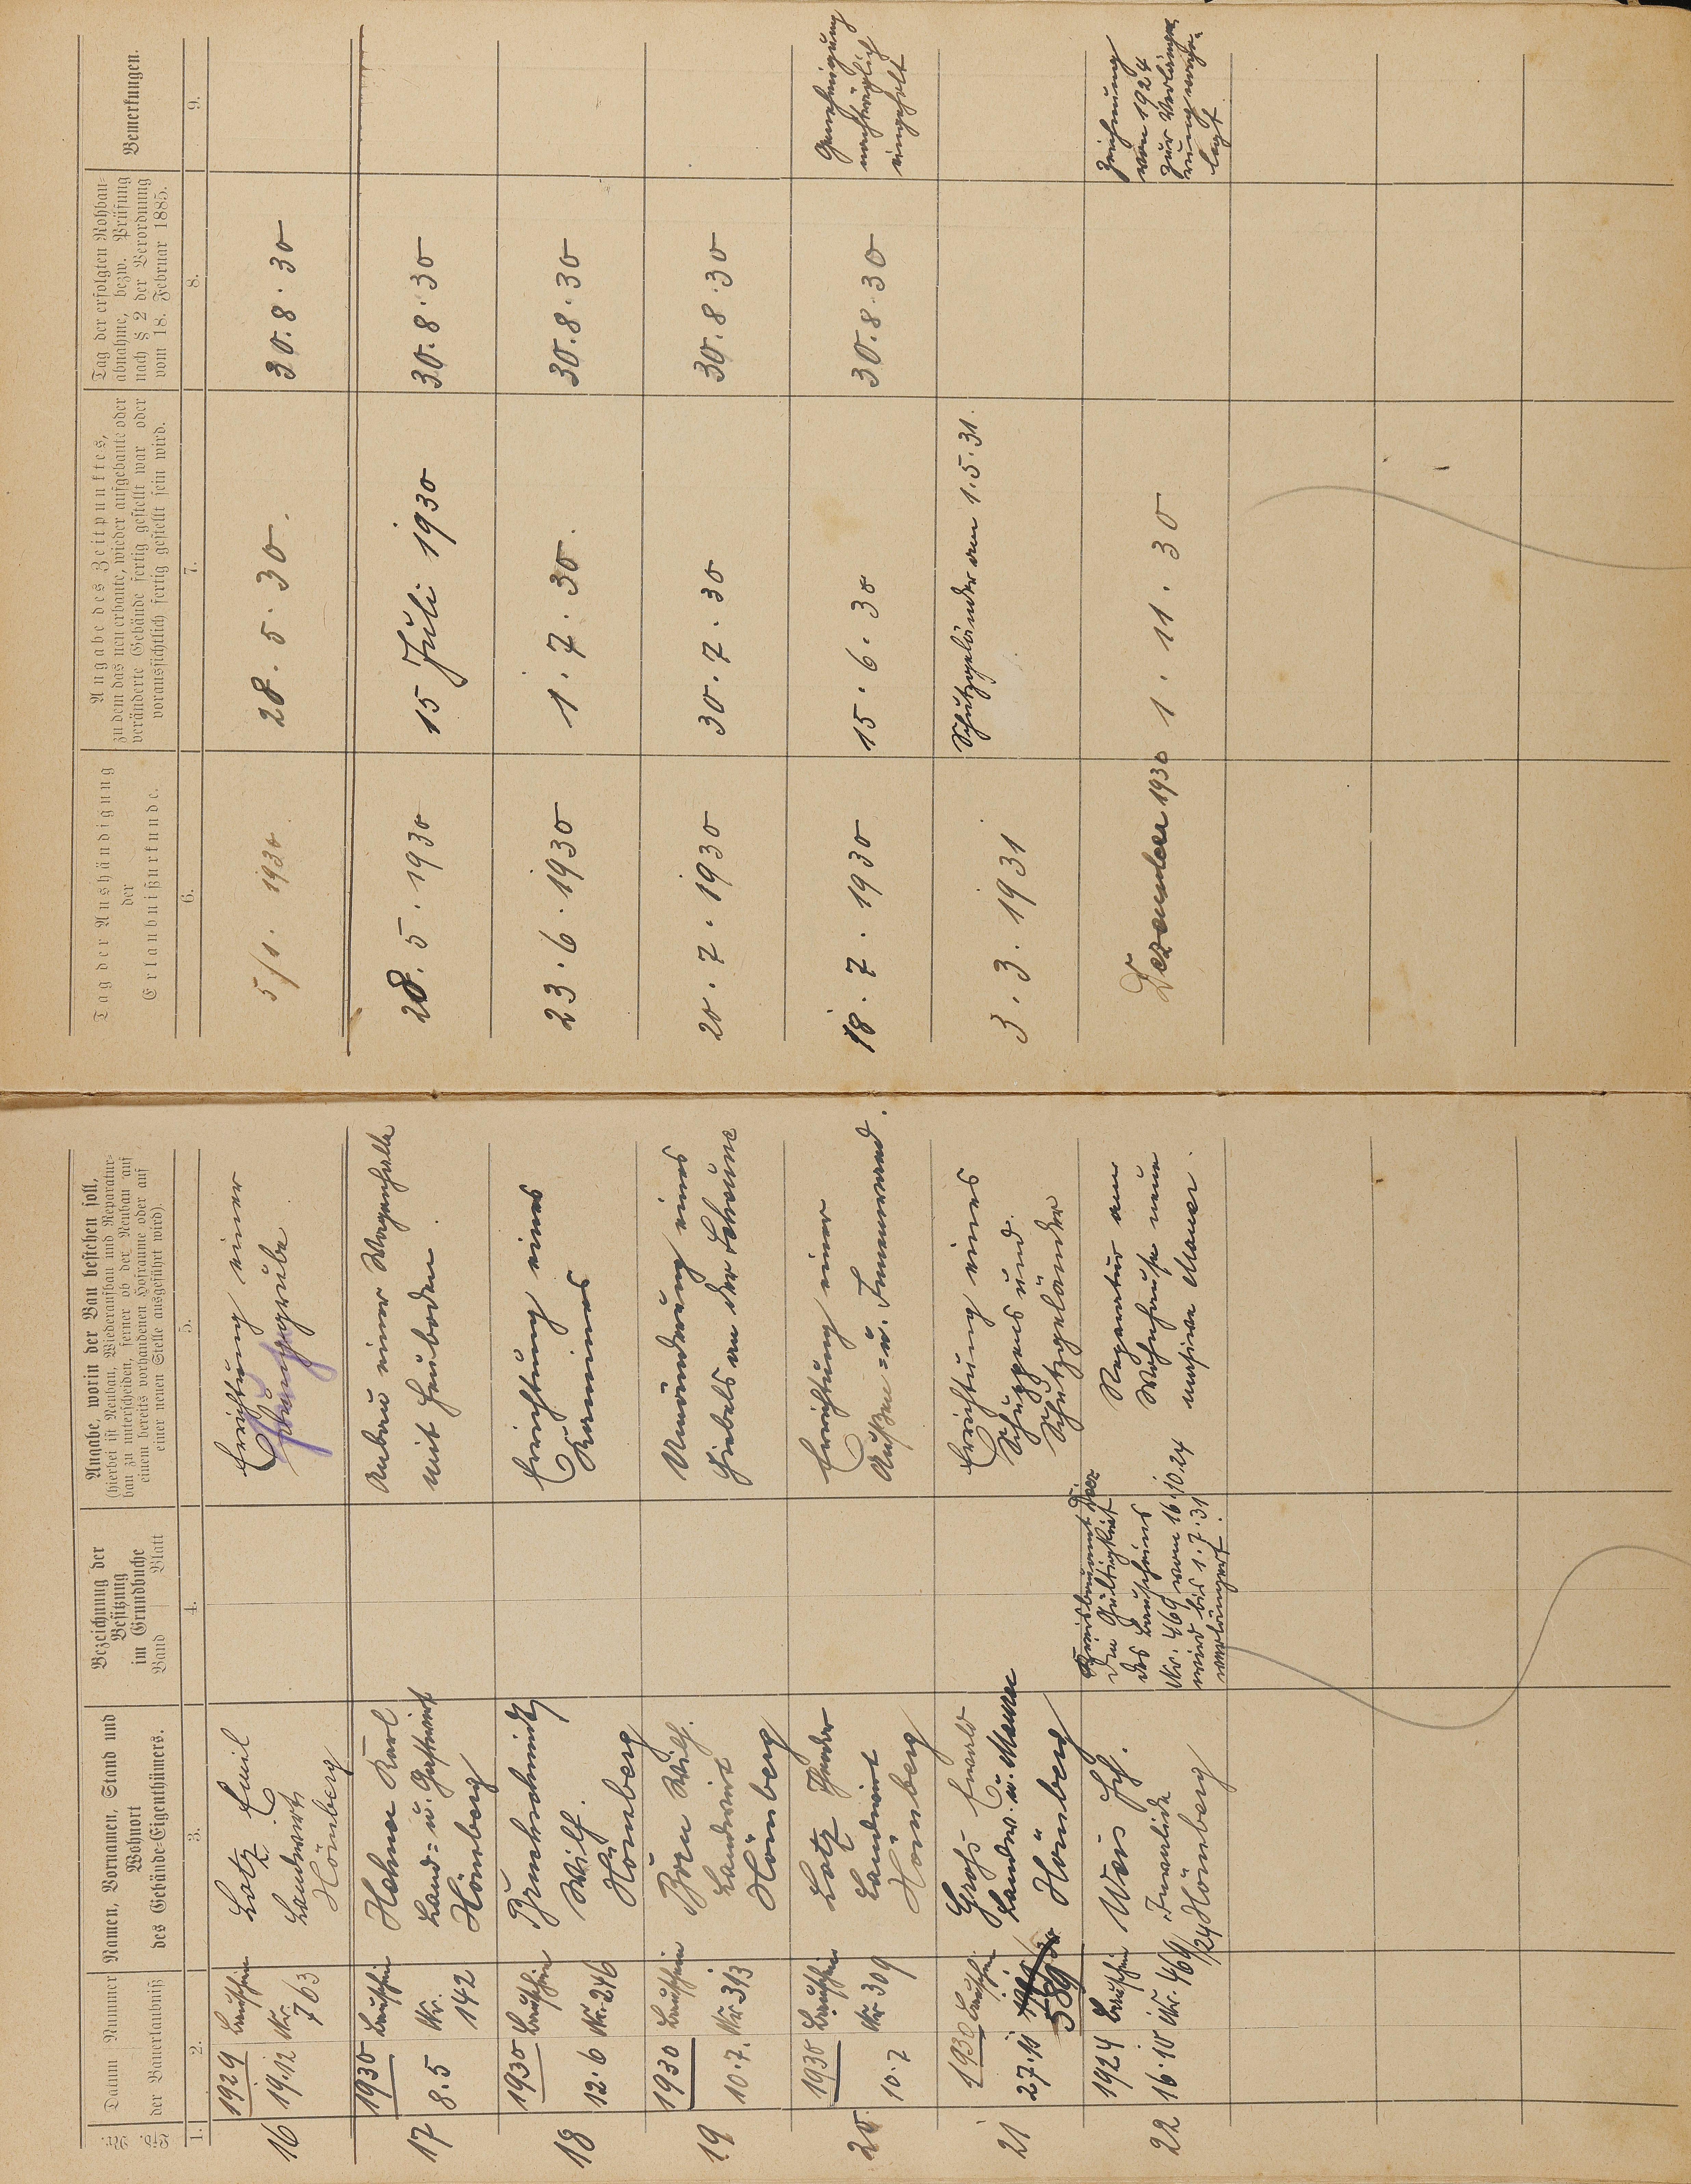 Lfd. Nr.
Datum Nummer
der Bauerlaubniß
Namen, Vornamen, Stand und
Wohnort
des Gebäude-Eigenthümers.
Bezeichnung der
Besitzung
im Grundbuche
Band Blatt
Angabe, worin der Bau bestehen soll,
(hierbei ist Neubau, Wiederaufbau und Reparatur-
bau zu unterscheiden, ferner ob der Neubau auf
einem bereits vorhandenen Hofraume oder auf
einer neuen Stelle ausgeführt wird).
Tag der Aushändigung
der
Erlaubnißurkunde.
Angabe des Zeitpunktes,
zu dem das neu erbaute, wieder aufgebaute oder
veränderte Gebäude fertig gestellt war oder
voraussichtlich fertig gestellt sein wird.
Tag der erfolgten Rohbau-
abnahme, bezw. Prüfung
nach § 2 der Verordnung
vom 18. Februar 1885.
Bemerkungen.
1. 2. 3. 4. 5. 6. 7. 8. 9.
16
1929 Bauschein
19.12 Nr. 763
Lotz Emil
Landwirt
Hömberg
Errichtung einer
5/1. 1930.
28. 5. 30.
30. 8. 30
17
1930 Bauschein
8.5 Nr. 142
Hehner Karl
Land= u. Gastwirt
Hömberg
Anbau einer Wagenhalle
mit Heuboden.
28. 5. 1930
15 Juli 1930
30. 8. 30
18
1930 Bauschein
12.6 Nr. 246
Wilh.
Hömberg
Errichtung eines
Kamines
23. 6. 1930
1. 7. 30.
30. 8. 30
19
1930 Bauschein
10.7. Nr. 313
Wilh.
Landwirt
Hömberg
Umänderung eines
Giebels an der Scheune
20. 7. 1930
30. 7. 30
30. 8. 30
20.
1930 Bauschein
10.7 Nr. 309
Lotz
Landwirt
Hömberg
Errichtung einer
Außen= u. Innenwand.
18. 7. 1930
15. 6. 30
30. 8. 30
Genehmigung
nachträglich
eingeholt
21
1930 Bauschein
27.11
589
Groß Ewald
Landw. u. Maurer
Hömberg
Errichtung eines
Schuppens und
Schutzgeländer
3. 3. 1931
Schutzgeländer am 1.5.31.
22
1924 Bauschein
16.10 Nr. 469/24
Weis
Invalide
Hömberg
Die Gültigkeit
des Bauscheins
Nr. 469 vom 16.10.24
wird bis 1.7.31
verlängert.
Reparatur am
Wohnhause neue
massive Mauer.
Dezember 1930
1. 11. 30
Zeichnung
von 1924
zur Verlänge-
rung vorge-
legt